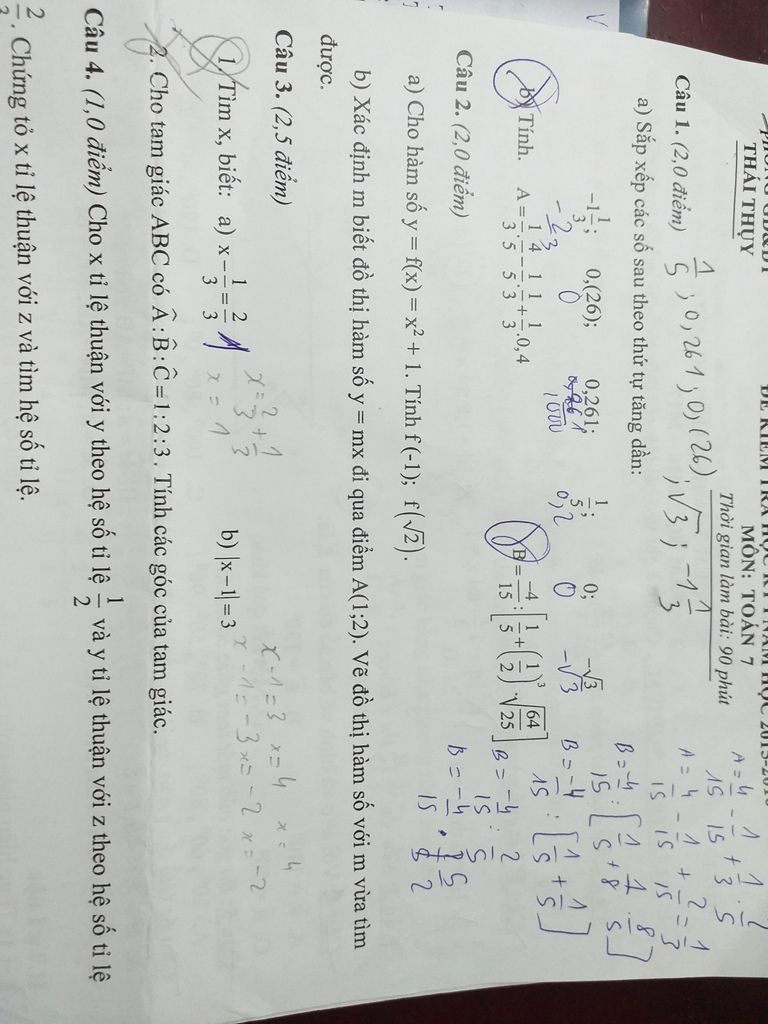 PHÒNG GD&ĐT
THÁI THỤY
ĐỀ KIỂM TRA HỌC KỲ I NĂM HỌC 2015-2016
MÔN: TOÁN 7
Thời gian làm bài: 90 phút
Câu 1. (2,0 điểm) 1/5 ; 0,261 ; 0,(26) ; √3 ; -1 1/3
a) Sắp xếp các số sau theo thứ tự tăng dần:
-1 1/3; 0,(26); 0,261; 1/5; 0; -√3
0 1000 0,2 0 -√3
b) Tính. A = 1/3 . 4/5 - 1/5 . 1/3 + 1/3 . 0,4 B = -4/15 : [1/5 + (1/2)³ . √(64/25)]
A = 4/15 - 1/15 + 1/3 . 2/5
A = 4/15 - 1/15 + 2/15 = 1/3
B = -4/15 : [1/5 + 1/8 . 8/5]
B = -4/15 : [1/5 + 1/5]
B = -4/15 : 2/5
B = -4/15 . 5/2
Câu 2. (2,0 điểm)
a) Cho hàm số y = f(x) = x² + 1. Tính f (-1); f(√2).
b) Xác định m biết đồ thị hàm số y = mx đi qua điểm A(1;2). Vẽ đồ thị hàm số với m vừa tìm
được.
Câu 3. (2,5 điểm)
x = 2/3 + 1/3
x = 1
x - 1 = 3 x = 4 x = 4
x - 1 = -3 x = -2 x = -2
1. Tìm x, biết: a) x - 1/3 = 2/3 b) |x - 1| = 3
2. Cho tam giác ABC có Â : B̂ : Ĉ = 1 : 2 : 3. Tính các góc của tam giác.
Câu 4. (1,0 điểm) Cho x tỉ lệ thuận với y theo hệ số tỉ lệ 1/2 và y tỉ lệ thuận với z theo hệ số tỉ lệ
2/3. Chứng tỏ x tỉ lệ thuận với z và tìm hệ số tỉ lệ.